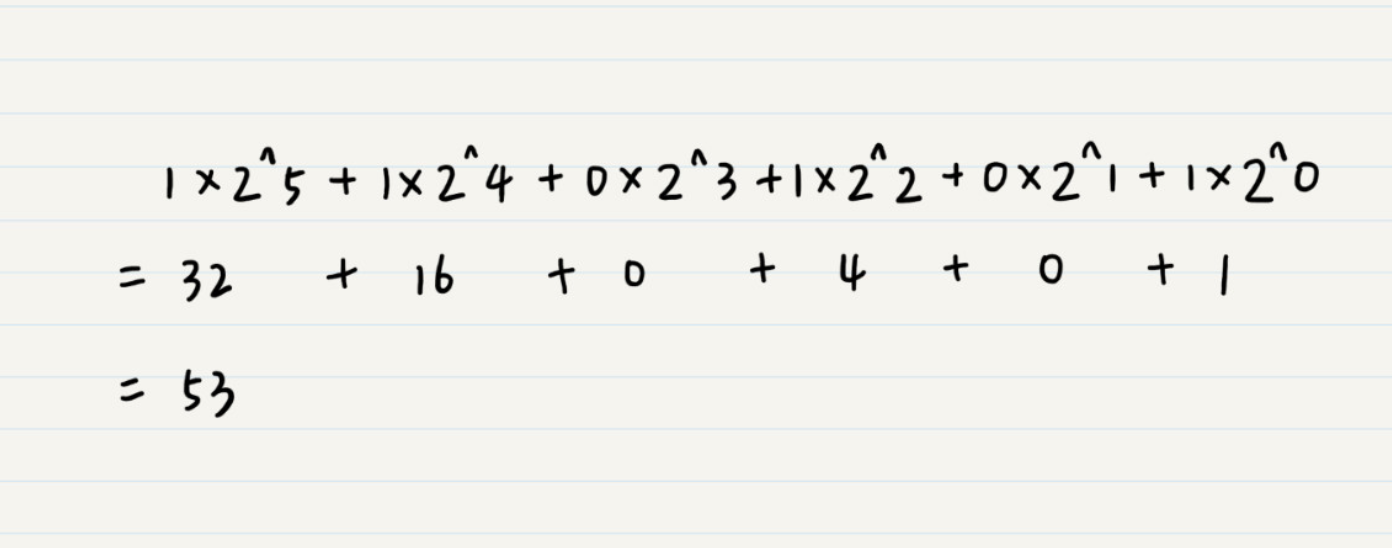 1 × 2^5 + 1 × 2^4 + 0 × 2^3 + 1 × 2^2 + 0 × 2^1 + 1 × 2^0
= 32 + 16 + 0 + 4 + 0 + 1
= 53